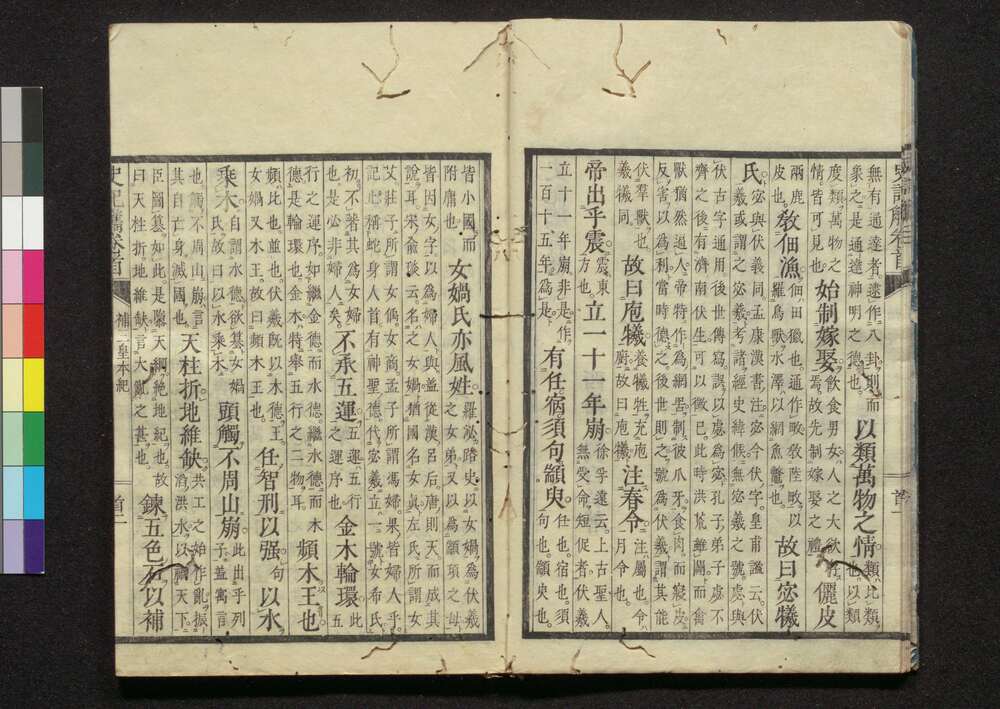 史記觽卷首
首一
無有通達者遂作八卦則而
象之是通達神明之德也
以類萬物之情
類比類
也以類
度類萬物之
情皆可見也
始制嫁娶
飲食男女人之大欲存
焉故先制嫁娶之禮
儷皮
兩鹿
皮也
敎佃漁
佃田獵也通作畋敎陸畋以
羅鳥獸水澤以網魚鼈也
故曰宓犧
氏
宓與伏羲同孟康漢書注宓今伏字皇甫謐云伏
羲或謂之宓羲考諸經史緯候無宓羲之號處與
伏古字通用後世傳寫誤以處為宓孔子弟子處不
齊之後有濟南伏生可以徵已此時洪荒鮮濶而禽
獸猶然逼人帝特作為網罟制彼爪牙食肉而寢皮
反害以為利當時德之後世則之號為伏羲謂其能
伏羣獸也
羲犧同
故曰庖犧
養犧牲充庖
廚故曰庖犧
注春令
注屬也令
月令也
帝出乎震
震東
方也
立一十一年崩
徐孚遠云上古聖人
無受命短促者伏羲
立十一年崩非是作
一百十五年為是
有任宿須句顓臾
任也宿也須
句也顓臾也
皆小國而
附庸也
女媧氏亦風姓
羅泌路史以女媧為伏羲
之女弟又以為顓頊之母
皆因女字以為婦人與蓋從漢呂后唐則天而成其
說耳宋兪琰云名之女媧猶國名女真左氏所謂女
艾莊子所謂女偊女商孟子所謂馮婦果皆婦人乎
記止稱蛇身人首有神聖德代宓羲立一號女希氏
初不著其為女婦
也是必非婦人矣
不承五運
五運五行
之運序也
金木輪環
此
五
行之運序如繼金德而水德繼水德而木
德是輪環也金木特舉五行之二物耳
頻木王也
頻比也並也伏羲既以木德王
女媧又木王故曰頻木王也
任智刑以强
句
以水
乗木
自謂水德欲簒女媧
氏故曰以水乗木
頭觸不周山崩
此出乎列
子蓋寓言
也觸不周山崩言
其自亡身滅國也
天柱折地維缺
共工之始作亂振
滔洪水以禍天下
臣圖簒如此是墜天綱絶地紀也故
曰天柱折地維缺言大亂之甚也
錬五色石以補
史記觽卷首
補三皇本紀
首二